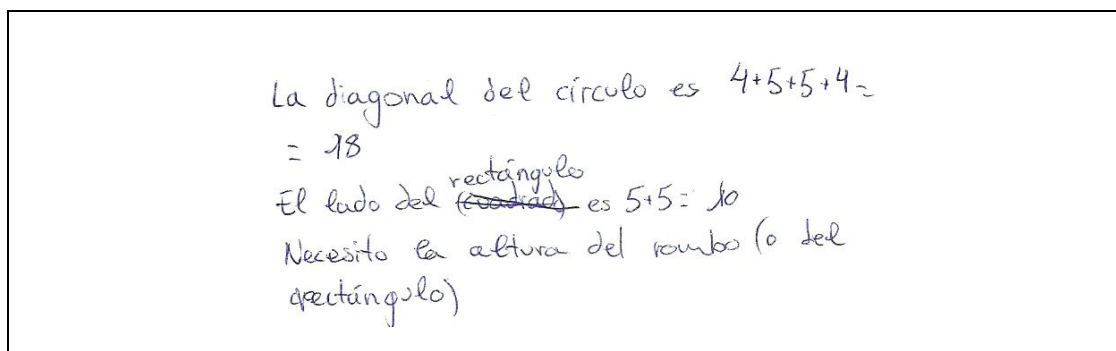 La diagonal del círculo es 4+5+5+4=
= 18
El lado del rectángulo (cuadrad) es 5+5= 10
Necesito la altura del rombo (o del
rectángulo)